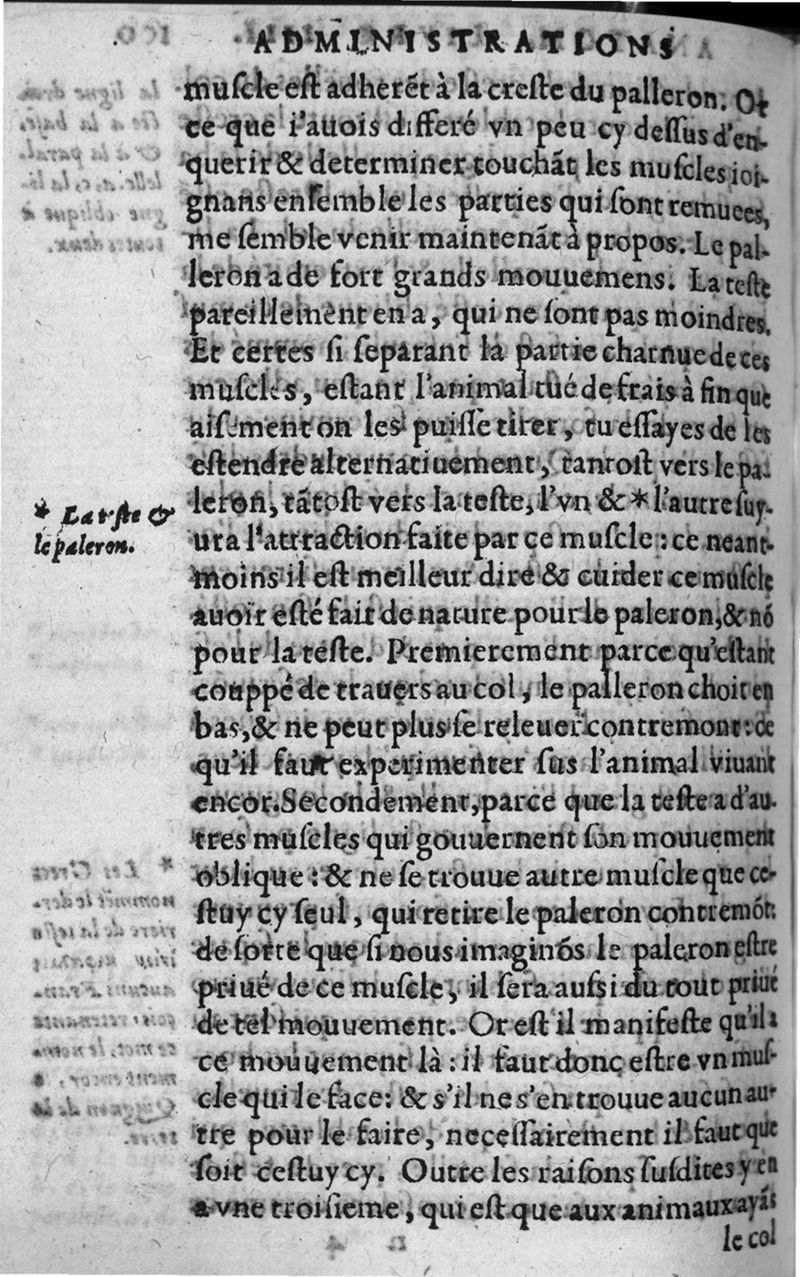 ADMINISTRATIONS
muſcle eſt adherẽt à la creſte du palleron. Or
ce que i'auois differé vn peu cy deſſus d'en-
querir & determiner touchãt les muſcles ioi-
gnans enſemble les parties qui ſont remuees,
me ſemble venir maintenãt à propos. Le pal-
leron a de fort grands mouuemens. La teſte
pareillement en a, qui ne ſont pas moindres.
Et certes ſi ſeparant la partie charnue de ces
muſcles, eſtant l'animal tué de frais à fin que
aiſement on les puiſſe tirer, tu eſſayes de les
eſtendre alternatiuement, tantoſt vers le pa-
leron, tãtoſt vers la teſte, l'vn & * l'autre ſuy-
ura l'attraction faite par ce muſcle : ce neant-
moins il eſt meilleur dire & cuider ce muſcle
auoir eſté fait de nature pour le paleron, & nõ
pour la teſte. Premierement parce qu'eſtant
couppé de trauers au col, le palleron choit en
bas, & ne peut plus ſe releuer contremont : ce
qu'il faut experimenter ſus l'animal viuant
encor. Secondement, parce que la teſte a d'au-
tres muſcles qui gouuernent ſon mouuement
oblique : & ne ſe trouue autre muſcle que ce-
ſtuy cy ſeul, qui retire le paleron contremõt:
de ſorte que ſi nous imaginõs le paleron eſtre
priué de ce muſcle, il ſera auſsi du tout priué
de tel mouuement. Or eſt il manifeſte qu'il a
ce mouuement là : il faut donc eſtre vn muſ-
cle qui le face: & s'il ne s'en trouue aucun au-
tre pour le faire, neceſſairement il faut que
ſoit ceſtuy cy. Outre les raiſons ſuſdites y en
a vne troiſieme, qui eſt que aux animaux ayãs
le col
* La teſte &
le paleron.